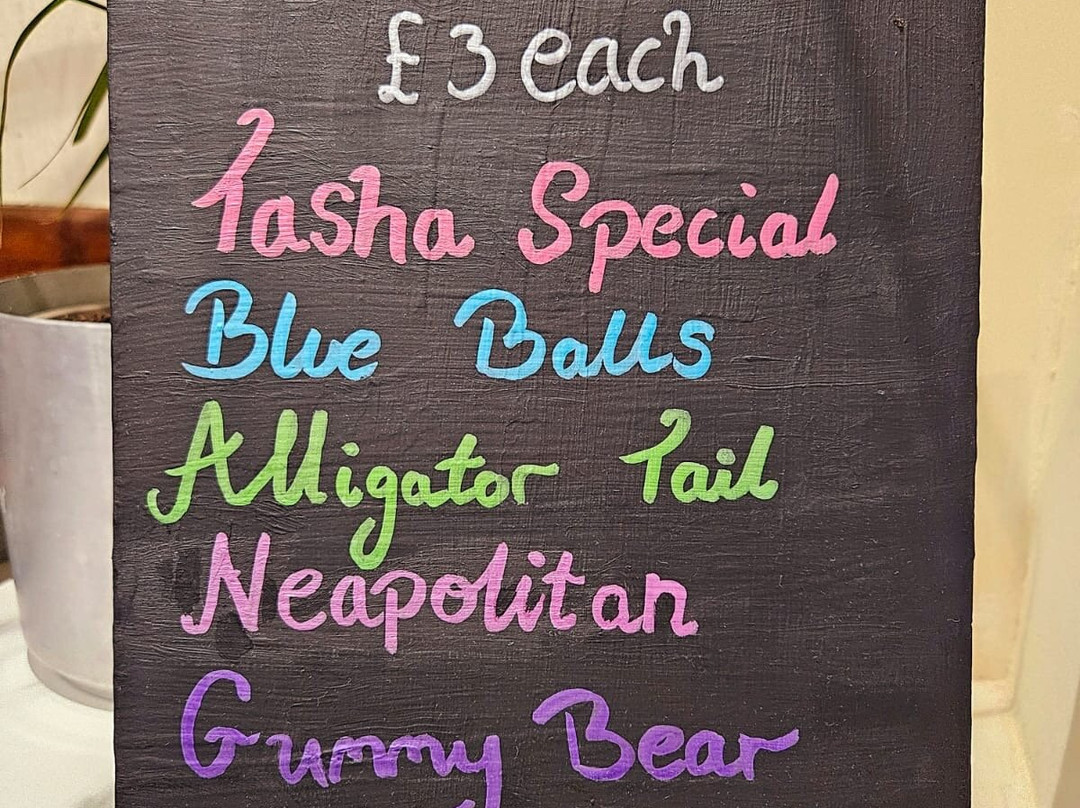 £3 each
Tasha Special
Blue Balls
Alligator Tail
Neapolitan
Gummy Bear